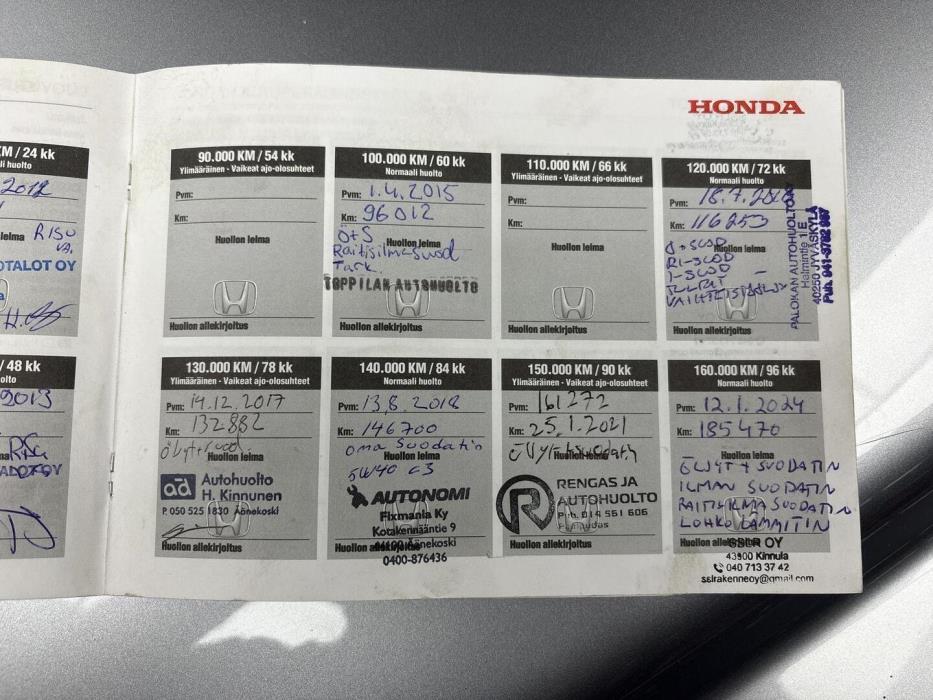 HONDA
M / 24 kk
li huolto
2012
lelma RISU
OTALOT OY
90.000 KM / 54 kk
Ylimääräinen - Vaikeat ajo-olosuhteet
Pvm:
Km:
Huollon leima
Huollon allekirjoitus
100.000 KM / 60 kk
Normaali huolto
Pvm: 1.4.2015
Km: 96012
Ö+S
Huollon leima
Raitisilmasuod
Tark.
TOPPILAN AUTOHUOLTO
Huollon allekirjoitus
110.000 KM / 66 kk
Ylimääräinen - Vaikeat ajo-olosuhteet
Pvm:
Km:
Huollon leima
Huollon allekirjoitus
120.000 KM / 72 kk
Normaali huolto
Pvm: 18.7.2016
Km: 116253
Huollon leima
Ö+SUOD
RI-SUOD
I-SUOD
Huollon allekirjoitus
PALOKAN AUTOHUOLTO
Halmintie 1 E
40250 JYVÄSKYLÄ
Puh.
/ 48 kk
olto
2013
ALOT OY
130.000 KM / 78 kk
Ylimääräinen - Vaikeat ajo-olosuhteet
Pvm: 14.12.2017
Km: 132882
öljyt+suod.
Huollon leima
ad Autohuolto
H. Kinnunen
P. 050 525 1830 Äänekoski
Huollon allekirjoitus
140.000 KM / 84 kk
Normaali huolto
Pvm: 13.8.2018
Km: 146700
oma suodatin
Huollon leima
5W40 C3
AUTONOMI
Fixmania Ky
Kotakennääntie 9
44100 Äänekoski
Huollon allekirjoitus
0400-876436
150.000 KM / 90 kk
Ylimääräinen - Vaikeat ajo-olosuhteet
Pvm: 161272
Km: 25.1.2021
Öljyt+suodatin
Huollon leima
R RENGAS JA
AUTOHUOLTO
Puh. 014 561 606
Pihtipudas
Huollon allekirjoitus
160.000 KM / 96 kk
Normaali huolto
Pvm: 12.1.2024
Km: 185470
Huollon leima
ÖLJYT + SUODATIN
ILMAN SUODATIN
RAITISILMA SUODATIN
LOHKO LÄMMITIN
Huollon allekirjoitus
SSLR OY
43900 Kinnula
040 713 37 42
sslrakenneoy@gmail.com